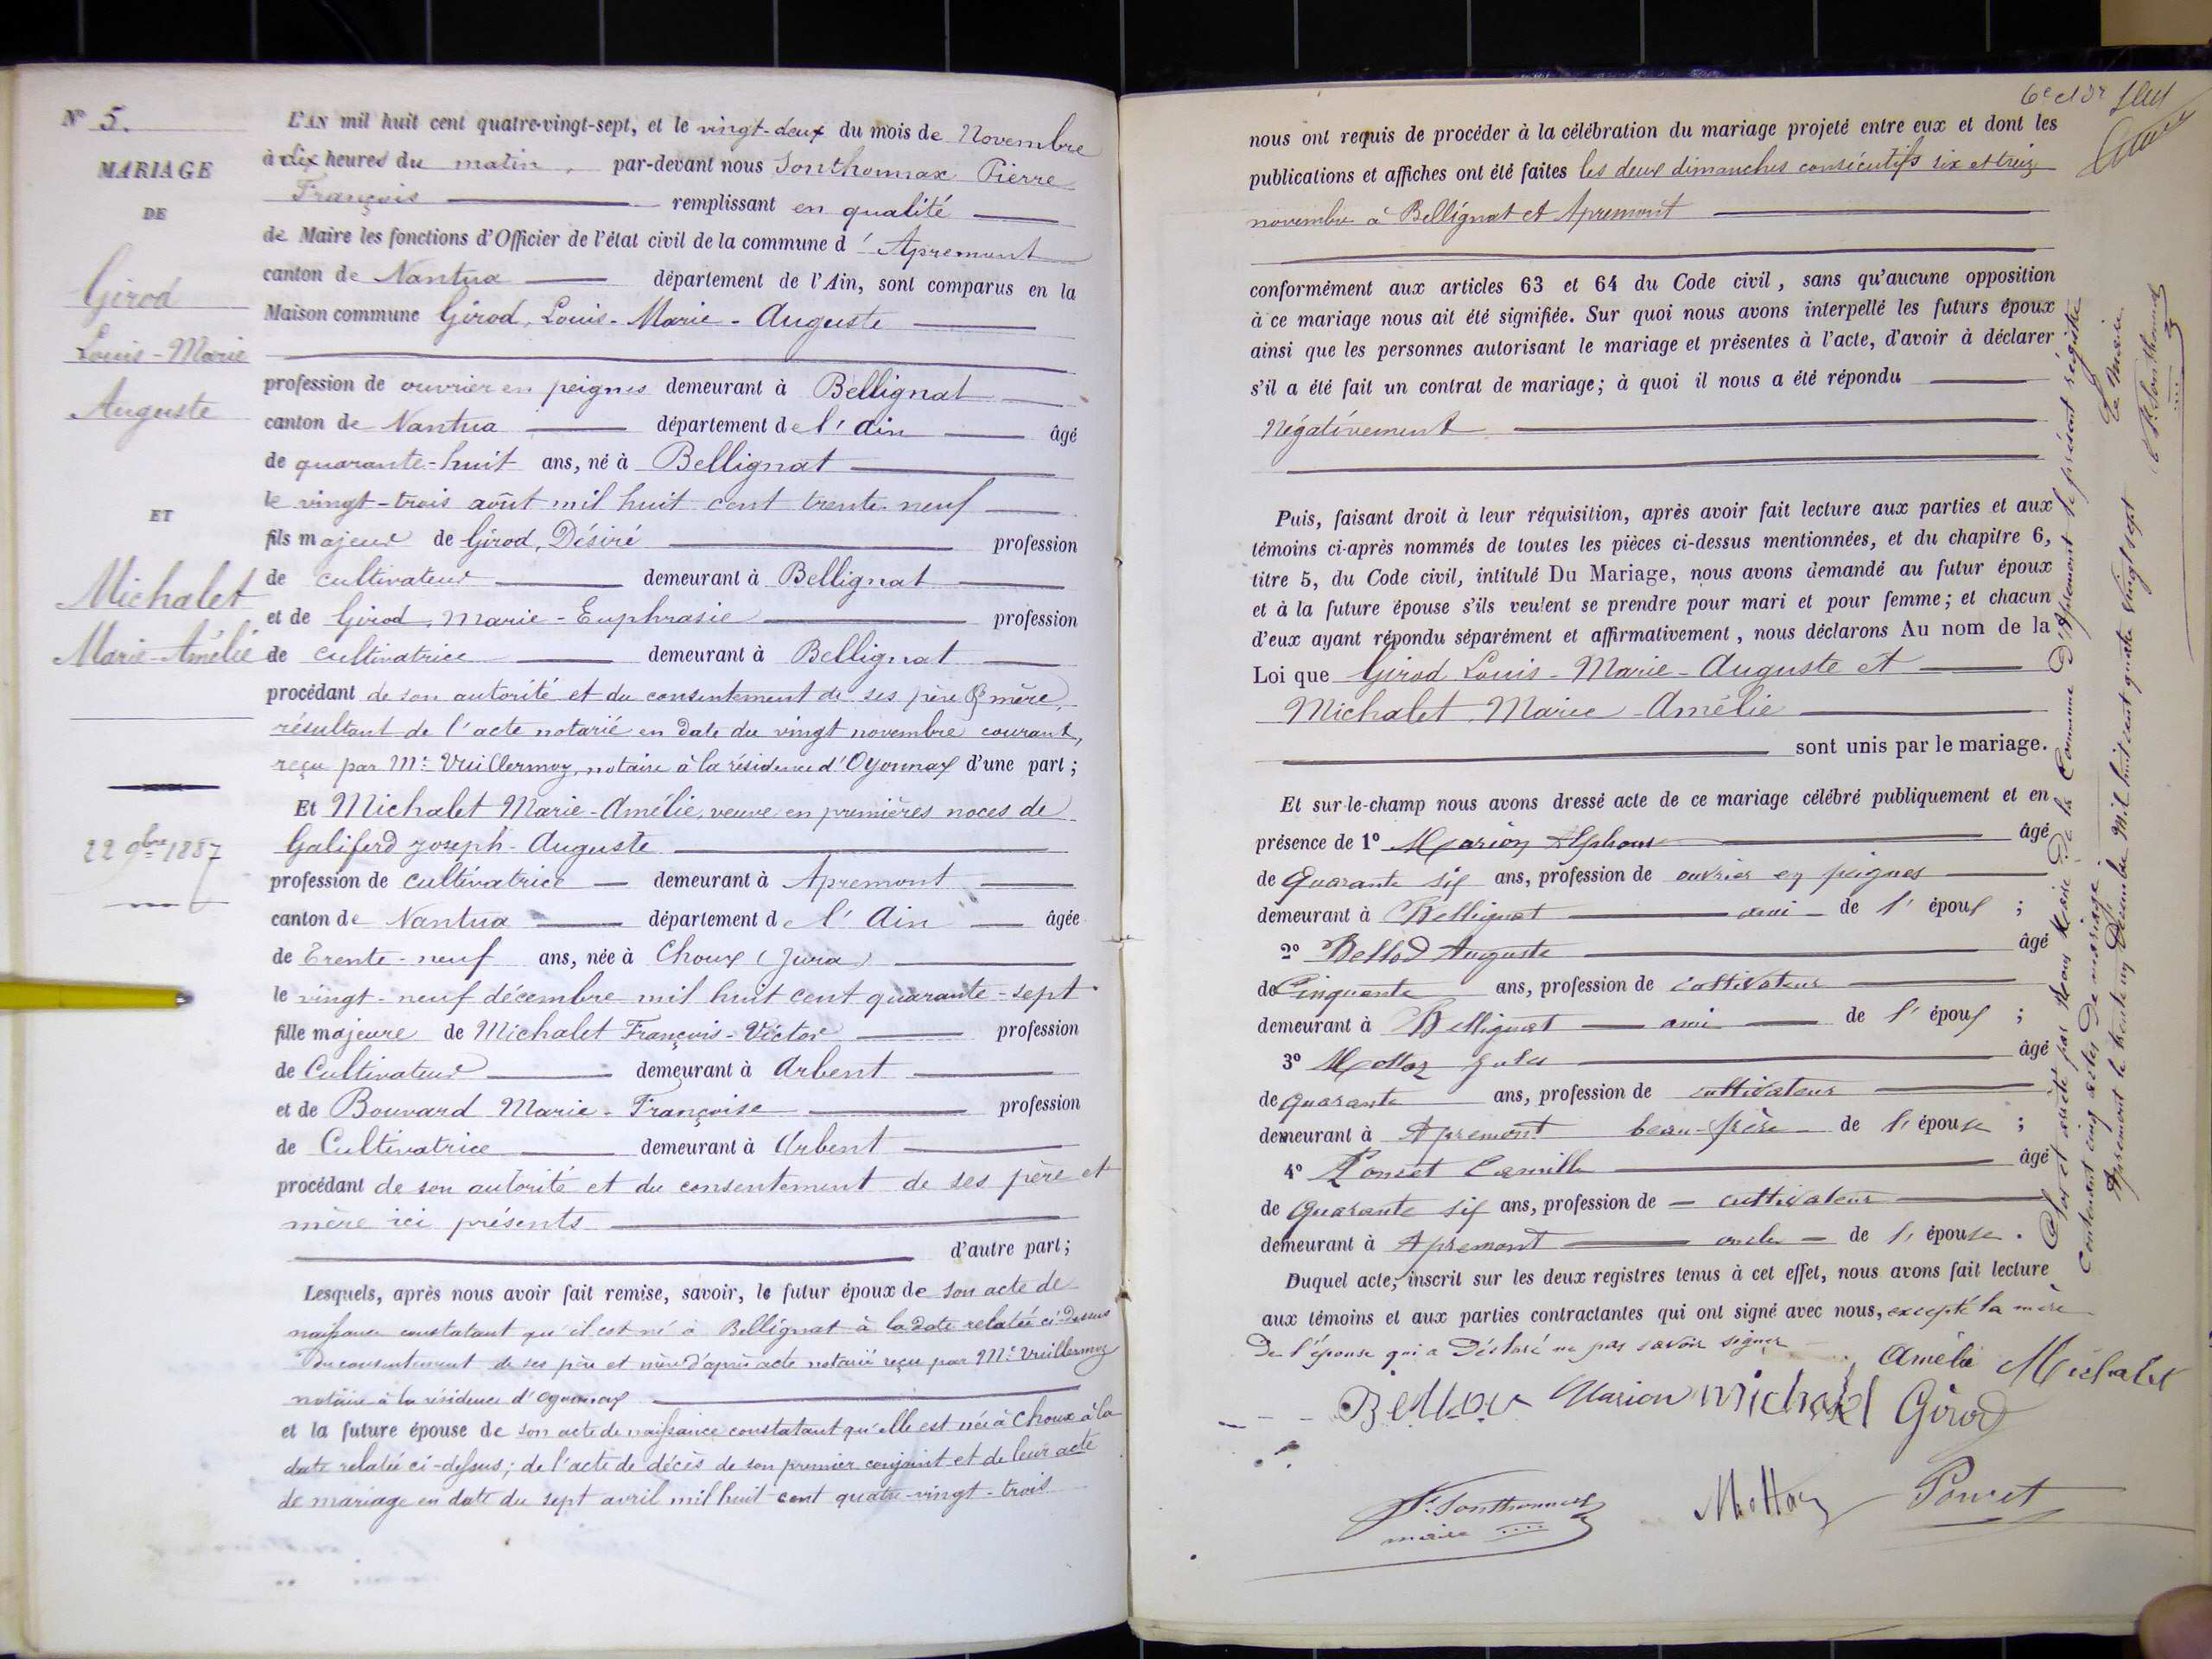 N° 5.
MARIAGE
DE
Girod
Louis-Marie
Auguste
ET
Michalet
Marie-Amélie
22 9bre 1887
L'AN mil huit cent quatre-vingt-sept, et le vingt-deux du mois de Novembre
à dix heures du matin, par-devant nous Sonthonnax Pierre
François remplissant en qualité
de Maire les fonctions d'Officier de l'état civil de la commune d'Apremont
canton de Nantua département de l'Ain, sont comparus en la
Maison commune Girod, Louis-Marie-Auguste
profession de ouvrier en peignes demeurant à Bellignat
canton de Nantua département de l'Ain âgé
de quarante-huit ans, né à Bellignat
le vingt-trois août mil huit cent trente neuf
fils majeur de Girod, Désiré profession
de cultivateur demeurant à Bellignat
et de Girod, Marie-Euphrasie profession
de cultivatrice demeurant à Bellignat
procédant de son autorité et du consentement de ses père & mère,
résultant de l'acte notarié en date du vingt novembre courant,
reçu par Me Vuillermoz, notaire à la résidence d'Oyonnax d'une part;
Et Michalet Marie-Amélie, veuve en premières noces de
Galiferd Joseph-Auguste
profession de cultivatrice demeurant à Apremont
canton de Nantua département de l'Ain âgée
de Trente-neuf ans, née à Choux (Jura)
le vingt-neuf décembre mil huit cent quarante-sept
fille majeure de Michalet François-Victor profession
de Cultivateur demeurant à Arbent
et de Bouvard Marie-Françoise profession
de Cultivatrice demeurant à Arbent
procédant de son autorité et du consentement de ses père et
mère ici présents
d'autre part;
Lesquels, après nous avoir fait remise, savoir, le futur époux de son acte de
naissance constatant qu'il est né à Bellignat à la date relatée ci-dessus
du consentement de ses père et mère d'après acte notarié reçu par Me Vuillermoz
notaire à la résidence d'Oyonnax
et la future épouse de son acte de naissance constatant qu'elle est née à Choux à la
date relatée ci-dessus; de l'acte de décès de son premier conjoint et de leur acte
de mariage en date du sept avril mil huit cent quatre-vingt-trois
nous ont requis de procéder à la célébration du mariage projeté entre eux et dont les
publications et affiches ont été faites les deux dimanches consécutifs six et treize
novembre à Bellignat et Apremont
conformément aux articles 63 et 64 du Code civil, sans qu'aucune opposition
à ce mariage nous ait été signifiée. Sur quoi nous avons interpellé les futurs époux
ainsi que les personnes autorisant le mariage et présentes à l'acte, d'avoir à déclarer
s'il a été fait un contrat de mariage; à quoi il nous a été répondu
Négativement
Puis, faisant droit à leur réquisition, après avoir fait lecture aux parties et aux
témoins ci-après nommés de toutes les pièces ci-dessus mentionnées, et du chapitre 6,
titre 5, du Code civil, intitulé Du Mariage, nous avons demandé au futur époux
et à la future épouse s'ils veulent se prendre pour mari et pour femme; et chacun
d'eux ayant répondu séparément et affirmativement, nous déclarons Au nom de la
Loi que Girod Louis-Marie-Auguste et
Michalet, Marie-Amélie
sont unis par le mariage.
Et sur-le-champ nous avons dressé acte de ce mariage célébré publiquement et en
présence de 1° Marion Alphonse âgé
de Quarante six ans, profession de ouvrier en peignes
demeurant à Bellignat ami de l'époux;
2° Bellod Auguste âgé
de Cinquante ans, profession de cultivateur
demeurant à Bellignat ami de l'époux;
3° Mottaz Jules âgé
de quarante ans, profession de cultivateur
demeurant à Apremont beau-frère de l'épouse;
4° Poncet Camille âgé
de Quarante six ans, profession de cultivateur
demeurant à Apremont oncle de l'épouse.
Duquel acte, inscrit sur les deux registres tenus à cet effet, nous avons fait lecture
aux témoins et aux parties contractantes qui ont signé avec nous, excepté la mère
De l'épouse qui a Déclaré ne pas savoir signer
Amélie Michalet
Bellod Marion Michalet Girod
P. Sonthonnax
maire
Mottaz Poncet
Clos et arrêté par Nous Maire De la Commune D'Apremont le présent registre
Contenant cinq actes De mariage
Apremont le trente un Décembre Mil huit cent quatre Vingt sept
Le Maire
P. Sonthonnax